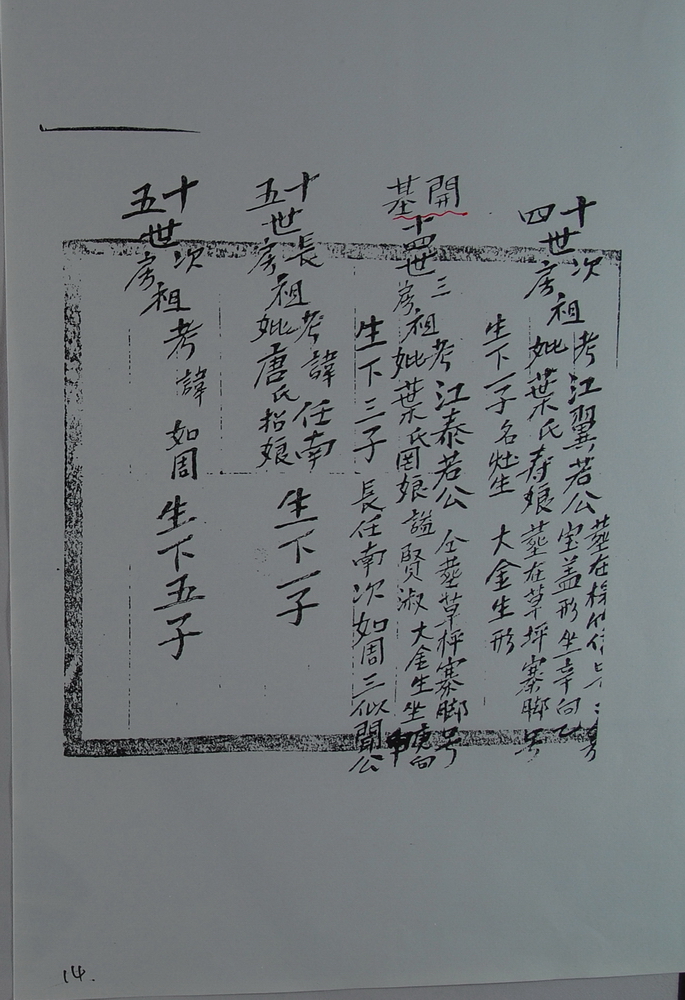 十四世次房祖
考江翼若公
葬在
宝盖形坐辛向乙
妣葉氏寿娘
葬在草坪寨脚
生下一子名灶生
大金生形
開基
十四世三房祖
考江泰若公
仝葬草坪寨脚
妣葉氏图娘謚賢淑
大金生坐庚向甲
生下三子
長任南次如周三似聞公
十五世長房祖
考諱任南
妣唐氏招娘
生下一子
十五世次房祖
考諱如周
生下五子
14.